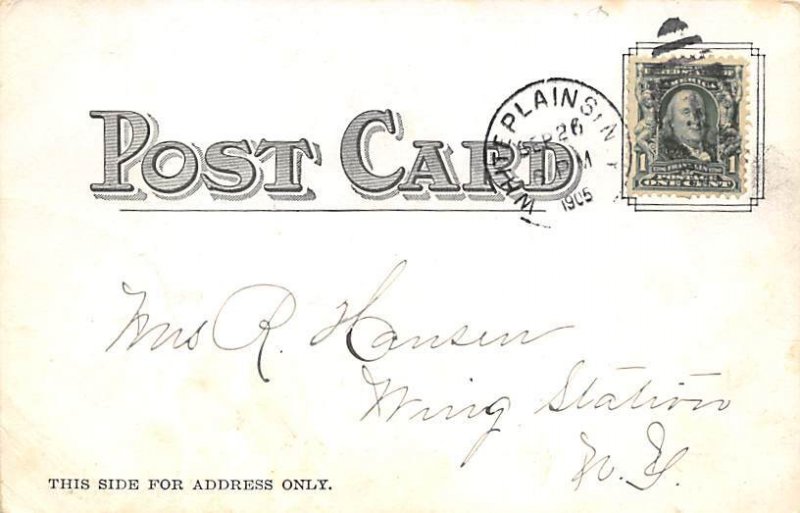 POST CARD
WHITE PLAINS, N.Y.
SEP 26
PM
1905
1 ONE CENT 1
Mrs R. Hansen
Wing Station
N. Y.
THIS SIDE FOR ADDRESS ONLY.